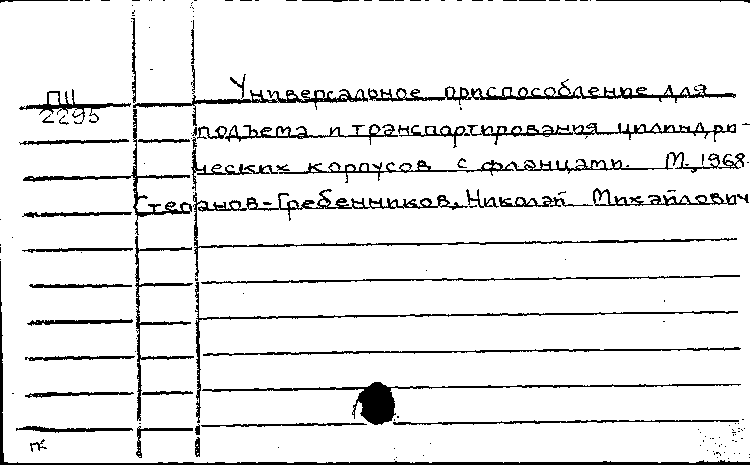 П11
2295
Универсальное приспособление для
подъема и транспортирования цилиндри-
ческих корпусов с фланцами. М., 1968.
Степанов-Гребенников, Николай Михайлович
ПК